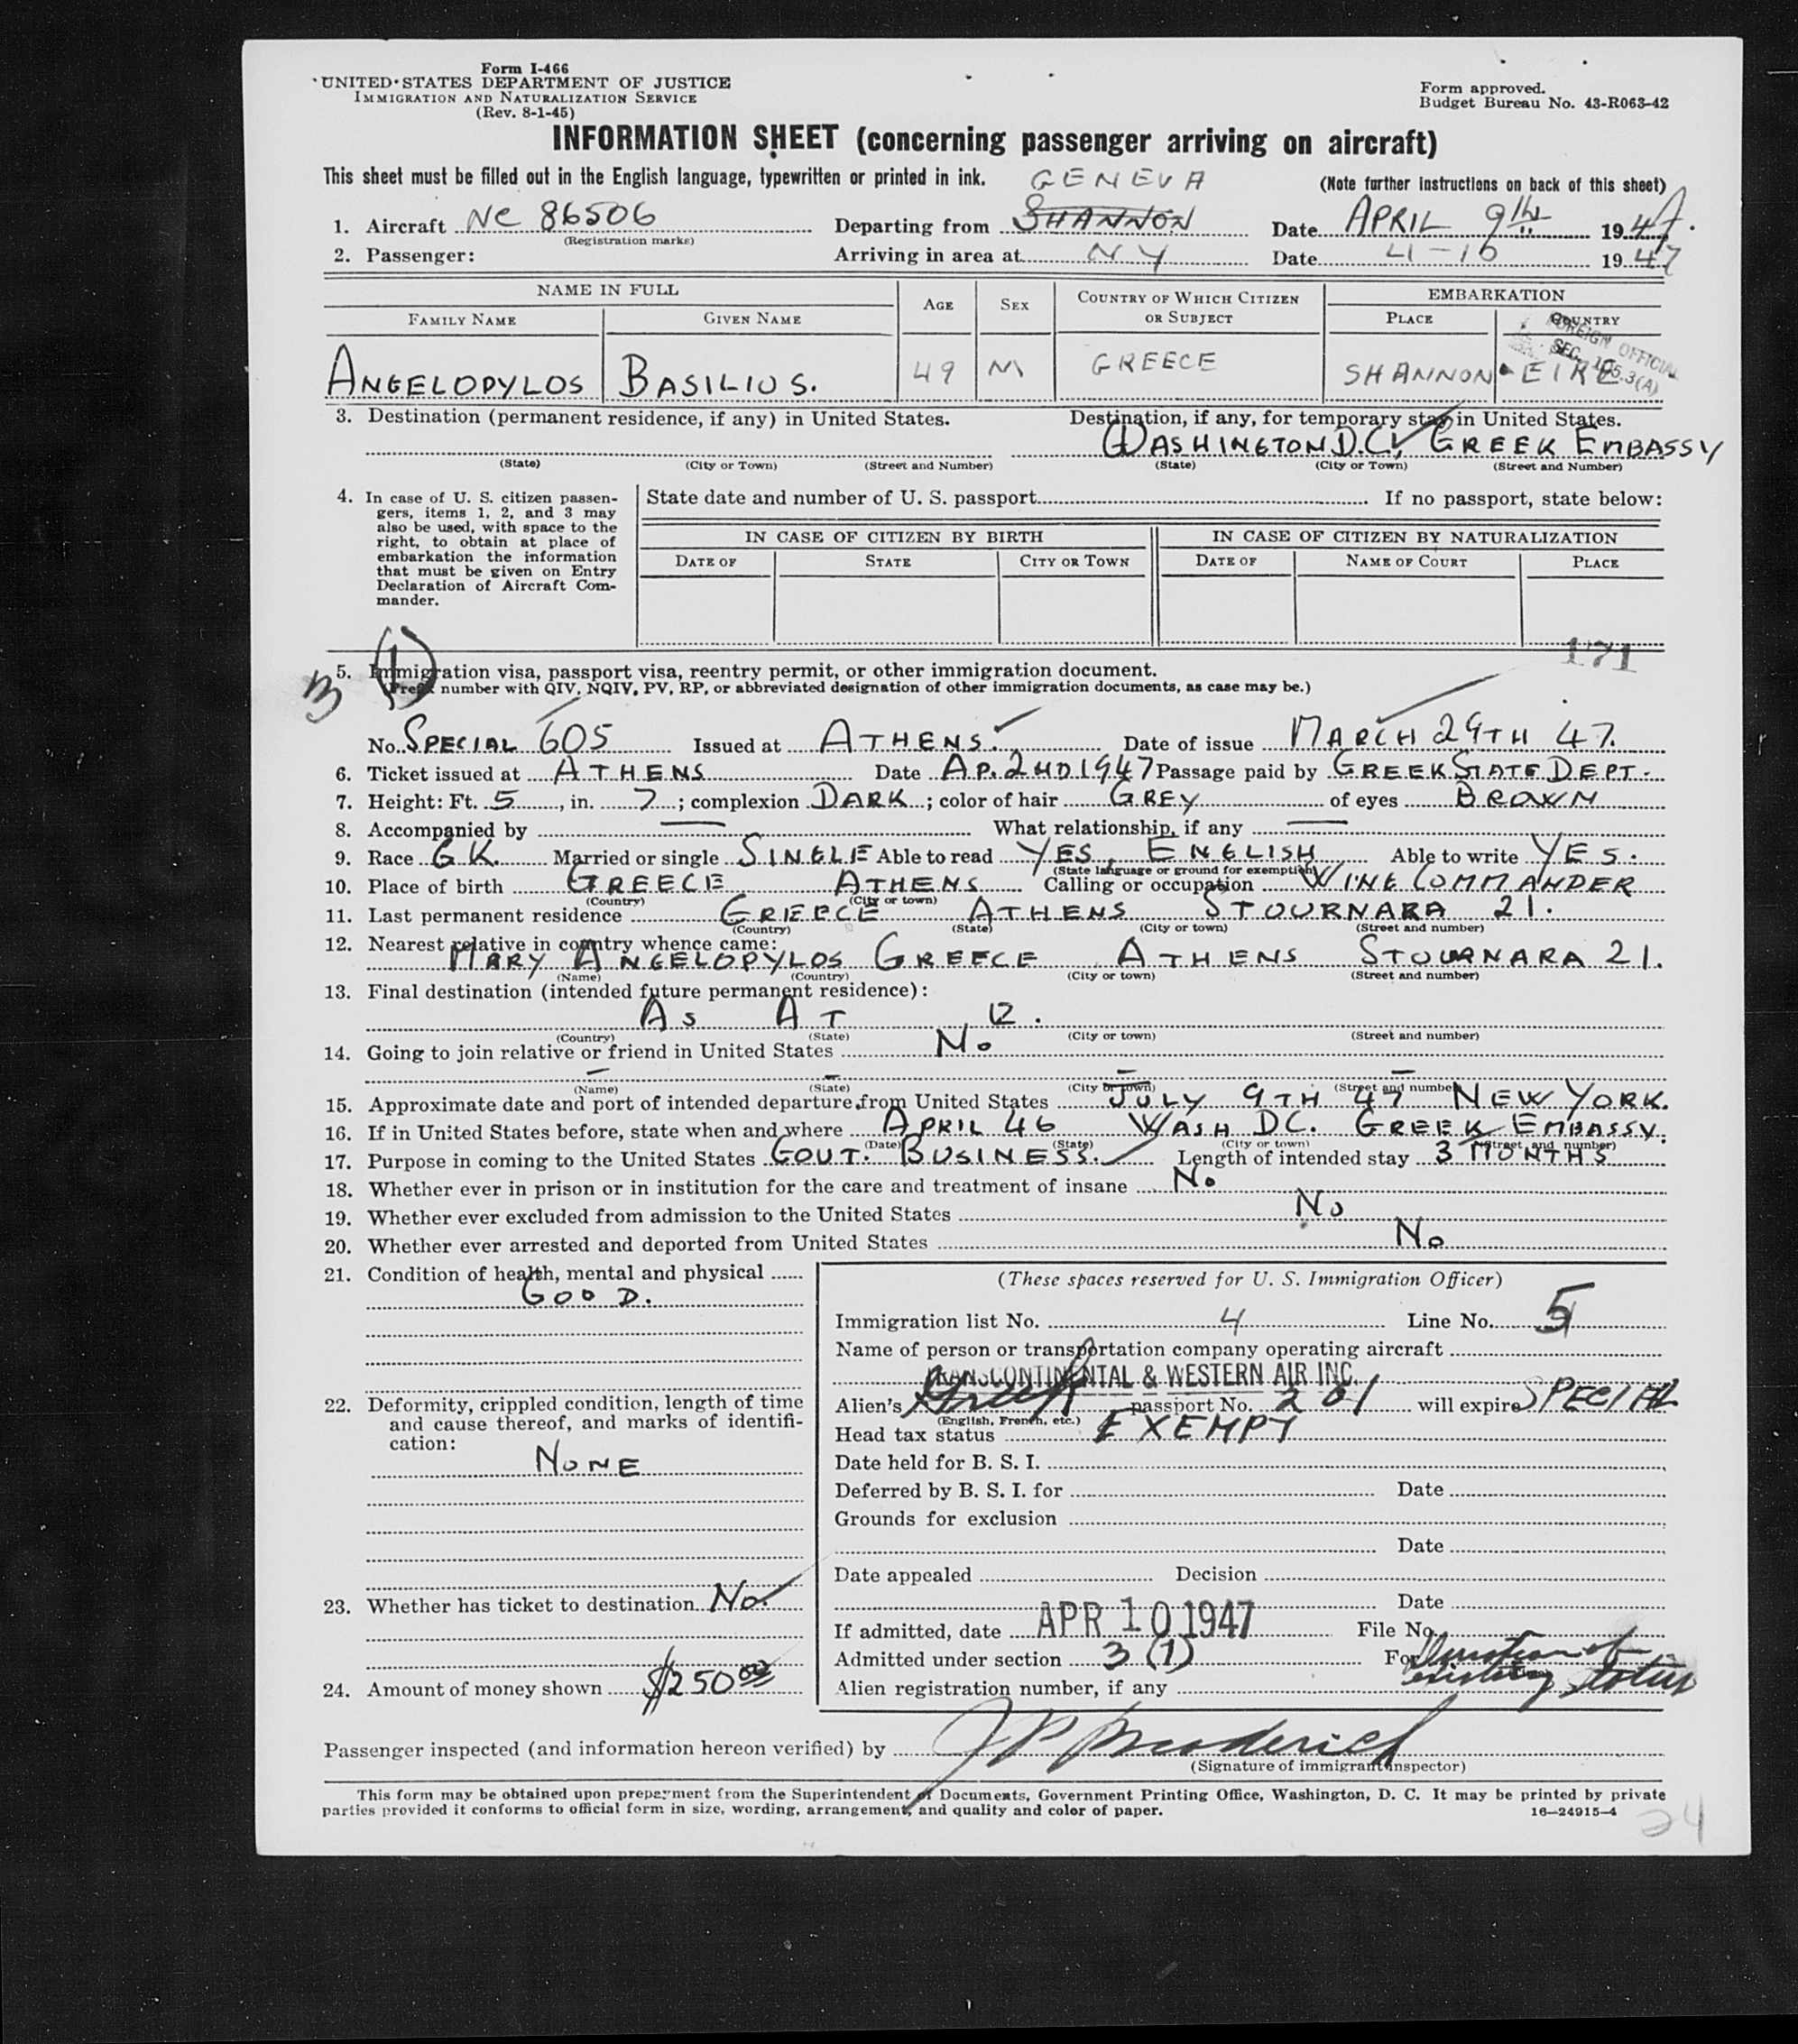 Form I-466
UNITED STATES DEPARTMENT OF JUSTICE
IMMIGRATION AND NATURALIZATION SERVICE
(Rev. 8-1-45)
Form approved.
Budget Bureau No. 43-R063-42
INFORMATION SHEET (concerning passenger arriving on aircraft)
This sheet must be filled out in the English language, typewritten or printed in ink. GENEVA (Note further instructions on back of this sheet)
1. Aircraft NC 86506 Departing from SHANNON Date APRIL 9th 1947.
(Registration marks)
2. Passenger: Arriving in area at NY Date 4-10 1947
NAME IN FULL AGE SEX COUNTRY OF WHICH CITIZEN OR SUBJECT EMBARKATION
FAMILY NAME GIVEN NAME PLACE COUNTRY
FOREIGN OFFICIAL
SEC. 3(A)
ANGELOPYLOS BASILIUS. 49 M GREECE SHANNON - EIRE
3. Destination (permanent residence, if any) in United States. Destination, if any, for temporary stay in United States.
WASHINGTON D.C. GREEK EMBASSY
(State) (City or Town) (Street and Number) (State) (City or Town) (Street and Number)
4. In case of U. S. citizen passen-
gers, items 1, 2, and 3 may
also be used, with space to the
right, to obtain at place of
embarkation the information
that must be given on Entry
Declaration of Aircraft Com-
mander.
State date and number of U. S. passport If no passport, state below:
IN CASE OF CITIZEN BY BIRTH IN CASE OF CITIZEN BY NATURALIZATION
DATE OF STATE CITY OR TOWN DATE OF NAME OF COURT PLACE
171
3 (1)
5. Immigration visa, passport visa, reentry permit, or other immigration document.
(Prefix number with QIV, NQIV, PV, RP, or abbreviated designation of other immigration documents, as case may be.)
No. SPECIAL 605 Issued at ATHENS. Date of issue MARCH 29TH 47.
6. Ticket issued at ATHENS Date AP. 2ND 1947 Passage paid by GREEK STATE DEPT.
7. Height: Ft. 5, in. 7; complexion DARK; color of hair GREY of eyes BROWN
8. Accompanied by — What relationship, if any —
9. Race GK. Married or single SINGLE Able to read YES, ENGLISH Able to write YES.
(State language or ground for exemption)
10. Place of birth GREECE ATHENS Calling or occupation WING COMMANDER
(Country) (City or town)
11. Last permanent residence GREECE ATHENS STOURNARA 21.
(Country) (State) (City or town) (Street and number)
12. Nearest relative in country whence came:
MARY ANGELOPYLOS GREECE ATHENS STOURNARA 21.
(Name) (Country) (City or town) (Street and number)
13. Final destination (intended future permanent residence):
AS AT 12.
(Country) (State) (City or town) (Street and number)
14. Going to join relative or friend in United States No
(Name) (State) (City or town) (Street and number)
15. Approximate date and port of intended departure from United States JULY 9TH 47 NEW YORK.
16. If in United States before, state when and where APRIL 46 WASH DC. GREEK EMBASSY.
(Date) (State) (City or town) (Street and number)
17. Purpose in coming to the United States GOUT. BUSINESS. Length of intended stay 3 MONTHS
18. Whether ever in prison or in institution for the care and treatment of insane No
19. Whether ever excluded from admission to the United States No
20. Whether ever arrested and deported from United States No
21. Condition of health, mental and physical
GOOD.
22. Deformity, crippled condition, length of time
and cause thereof, and marks of identifi-
cation:
NONE
23. Whether has ticket to destination No.
24. Amount of money shown $250 00
(These spaces reserved for U. S. Immigration Officer)
Immigration list No. 4 Line No. 5
Name of person or transportation company operating aircraft
TRANSCONTINENTAL & WESTERN AIR INC.
Alien's Greek passport No. 201 will expire SPECIAL
(English, French, etc.)
Head tax status EXEMPT
Date held for B. S. I.
Deferred by B. S. I. for Date
Grounds for exclusion
Date
Date appealed Decision
Date
If admitted, date APR 10 1947 File No.
Admitted under section 3 (1) For Duration of
existing status
Alien registration number, if any
Passenger inspected (and information hereon verified) by J P Broderick
(Signature of immigrant inspector)
This form may be obtained upon prepayment from the Superintendent of Documents, Government Printing Office, Washington, D. C. It may be printed by private
parties provided it conforms to official form in size, wording, arrangement, and quality and color of paper. 16—24915-4
24